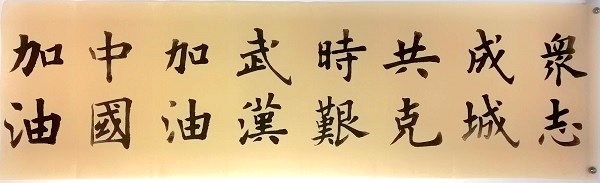 眾志
成城
共克
時艱
武漢
加油
中國
加油